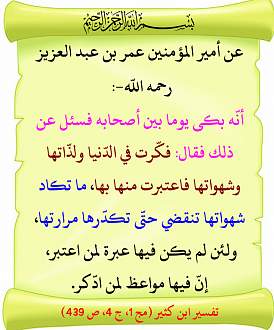 بسم الله الرحمن الرحيم
عن أمير المؤمنين عمر بن عبد العزيز
رحمه الله-:
أنّه بكى يوما بين أصحابه فسئل عن
ذلك فقال: فكّرت في الدّنيا ولذّاتها
وشهواتها فاعتبرت منها بها، ما تكاد
شهواتها تنقضي حتّى تكدّرها مرارتها،
ولئن لم يكن فيها عبرة لمن اعتبر،
إنّ فيها مواعظ لمن ادّكر.
تفسير ابن كثير (مج1، ج4، ص 439)